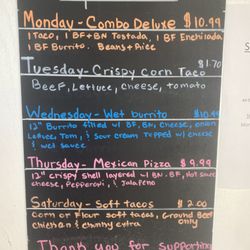 Monday - Combo Deluxe $10.99
1 Taco, 1 BF+BN Tostada, 1 BF Enchilada
1 BF Burrito. Beans + Rice
Tuesday - Crispy corn Taco $1.70
Beef, Lettuce, cheese, tomato
Wednesday - Wet burrito $10.49
12" Burrito filled w/ BF, BN, cheese, onion
Lettuce, Tom, & sour cream topped w/ cheese
& wet sauce
Thursday - Mexican Pizza $9.99
12" crispy shell layered w/ BN. BF, hot sauce
cheese, Pepperoni, & Jalapeño
Saturday - Soft tacos $2.00
Corn or Flour soft tacos, Ground Beef
chicken & chunky extra only
Thank you for supporting